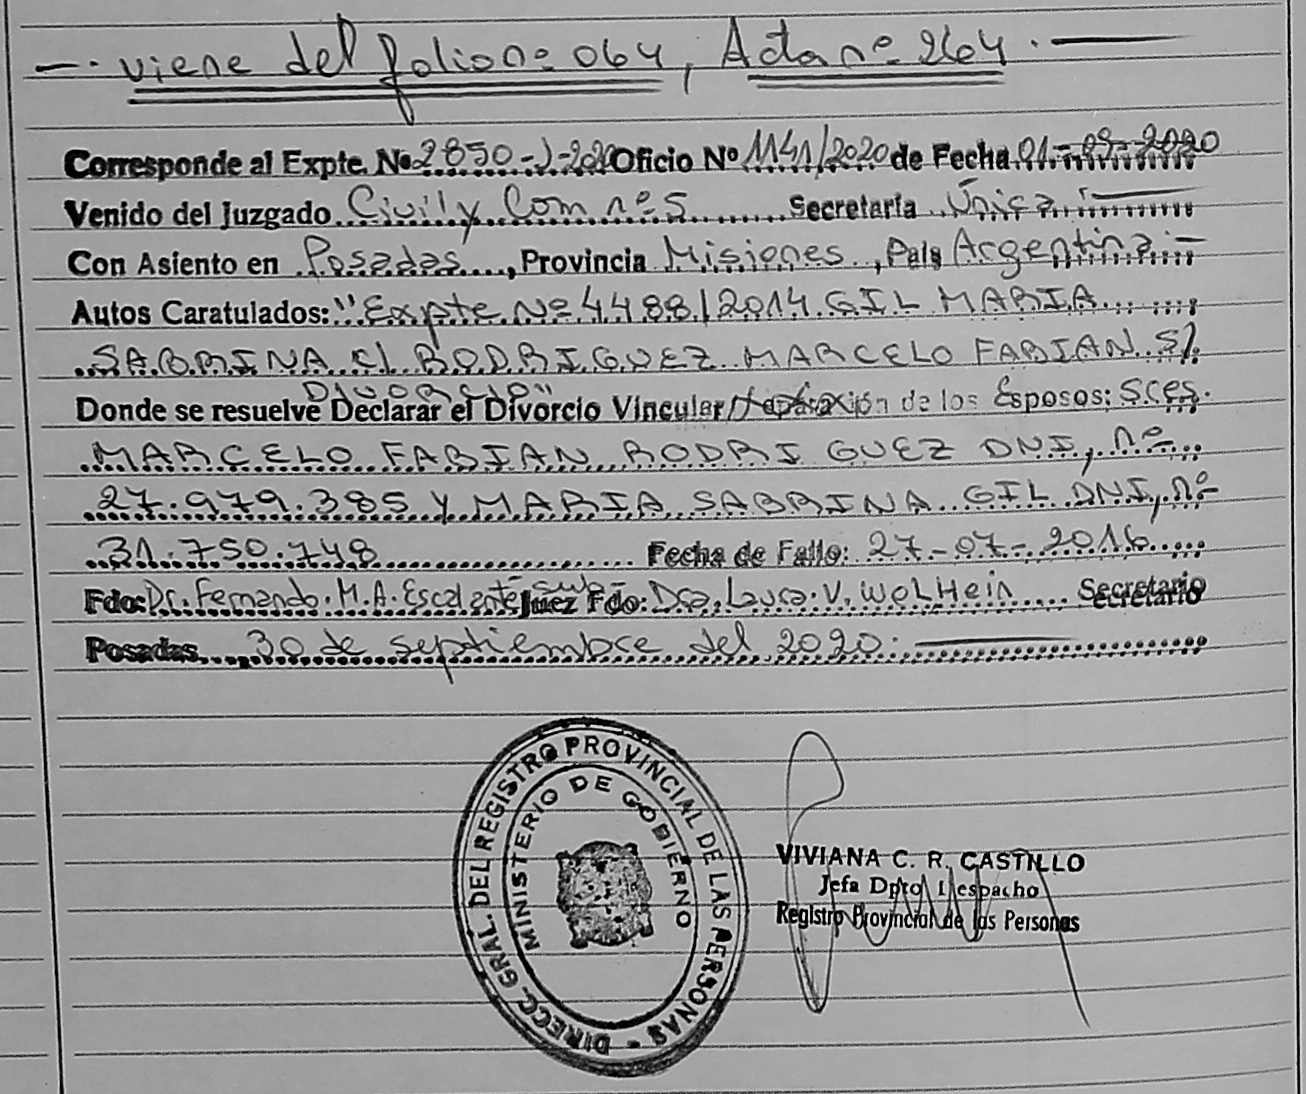 —. viene del folio nº 064, Acta nº 264. —
Corresponde al Expte. Nº 2850-J-2020 Oficio Nº 1141/2020 de Fecha 01-09-2020
Venido del Juzgado Civil y Com nº 5 Secretaría Única.—
Con Asiento en Posadas, Provincia Misiones, País Argentina.—
Autos Caratulados: "Expte Nº 4488/2014 GIL MARIA
SABRINA C/ RODRIGUEZ MARCELO FABIAN S/
DIVORCIO"
Donde se resuelve Declarar el Divorcio Vincular/Separación de los Esposos: Sres.
MARCELO FABIAN RODRIGUEZ DNI, nº
27.979.385 Y MARIA SABRINA GIL DNI, nº
31.750.748 Fecha de Fallo: 27-07-2016
Fdo: Dr. Fernando M.A. Escalante Juez Fdo: Dra. Laura V. WOLHein Secretario
Posadas, 30 de septiembre del 2020.—
DIRECC. GRAL. DEL REGISTRO PROVINCIAL DE LAS PERSONAS -
MINISTERIO DE GOBIERNO
VIVIANA C. R. CASTILLO
Jefa Dpto Despacho
Registro Provincial de las Personas